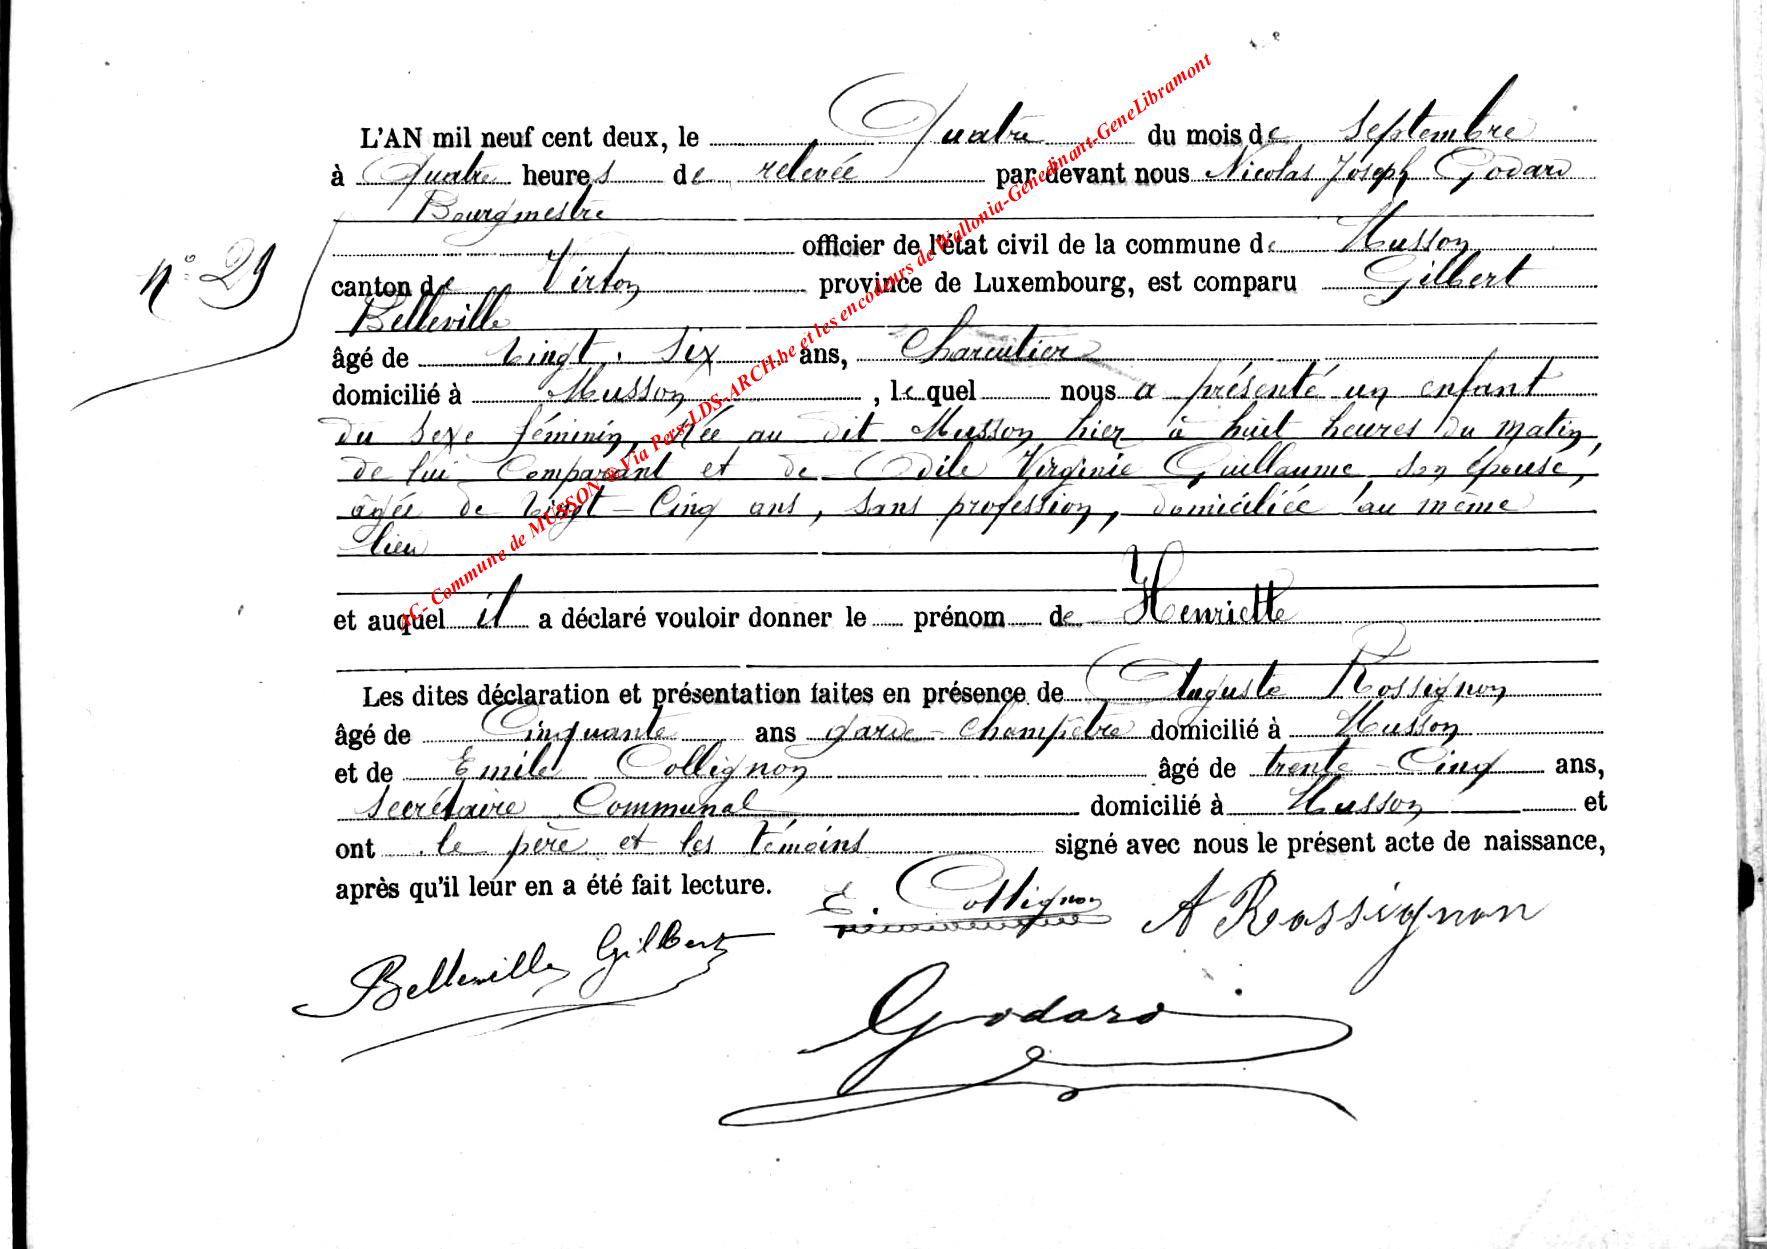 L'AN mil neuf cent deux, le Quatre du mois de septembre
à Quatre heures de relevée par devant nous Nicolas Joseph Godard
Bourgmestre
officier de l'état civil de la commune de Musson
n° 29
canton de Virton province de Luxembourg, est comparu Gilbert
Belleville
âgé de vingt-six ans, Charcutier
domicilié à Musson, lequel nous a présenté un enfant
du sexe féminin, Née au dit Musson hier à huit heures du matin,
de lui Comparant et de Odile Virginie Guillaume, son épouse,
âgée de vingt-Cinq ans, sans profession, domiciliée au même
lieu
et auquel il a déclaré vouloir donner le prénom de Henriette
Les dites déclaration et présentation faites en présence de Auguste Rossignon
âgé de Cinquante ans garde-champêtre domicilié à Musson
et de Emile Collignon âgé de trente-Cinq ans,
secrétaire Communal domicilié à Musson et
ont le père et les témoins signé avec nous le présent acte de naissance,
après qu'il leur en a été fait lecture.
E. Collignon A Rossignon
Belleville Gilbert
Godard
AG- Commune de MUSSON @ Via Pers-LDS-ARCH.be et les encodeurs de Wallonia-Genedinant-GeneLibramont